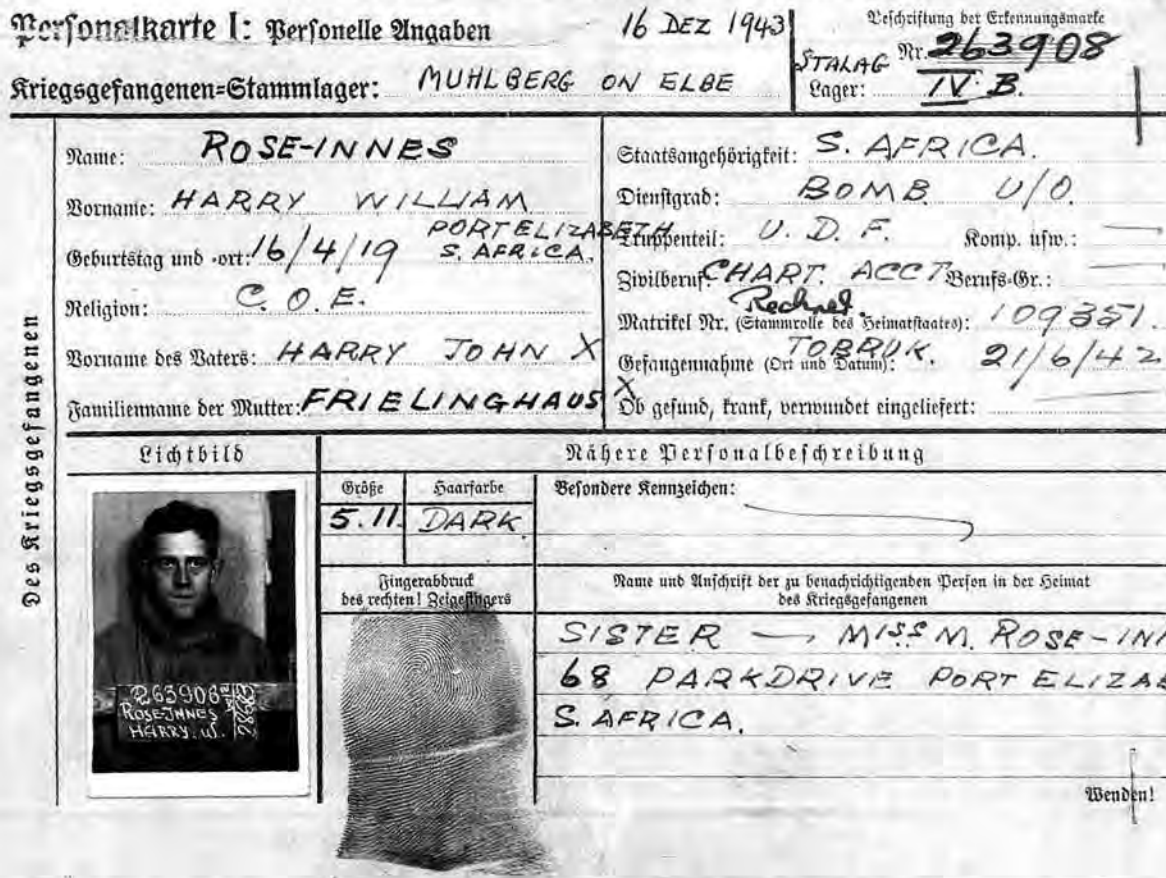 Personalkarte I: Personelle Angaben
16 DEZ 1943
Kriegsgefangenen=Stammlager: MUHLBERG ON ELBE
Beschriftung der Erkennungsmarke
STALAG Nr. 263908
Lager: IV B.
Des Kriegsgefangenen
Name: ROSE-INNES
Vorname: HARRY WILLIAM
Geburtstag und -ort: 16/4/19 PORT ELIZABETH S. AFRICA.
Religion: C. O. E.
Vorname des Vaters: HARRY JOHN X
Familienname der Mutter: FRIELINGHAUS X
Staatsangehörigkeit: S. AFRICA.
Dienstgrad: BOMB. U/O.
Truppenteil: U. D. F. Komp. usw.:
Zivilberuf: CHART. ACCT Berufs-Gr.:
Matrikel Nr. (Stammrolle des Heimatstaates): 109351.
Gefangennahme (Ort und Datum): TOBRUK. 21/6/42
Ob gesund, krank, verwundet eingeliefert:
Lichtbild
263908
ROSE-INNES
HARRY. W.
Nähere Personalbeschreibung
Größe
5.11.
Haarfarbe
DARK.
Besondere Kennzeichen:
Fingerabdruck
des rechten! Zeigefingers
Name und Anschrift der zu benachrichtigenden Person in der Heimat
des Kriegsgefangenen
SISTER — MISS M. ROSE-INN
68 PARKDRIVE PORT ELIZAB
S. AFRICA.
Wenden!